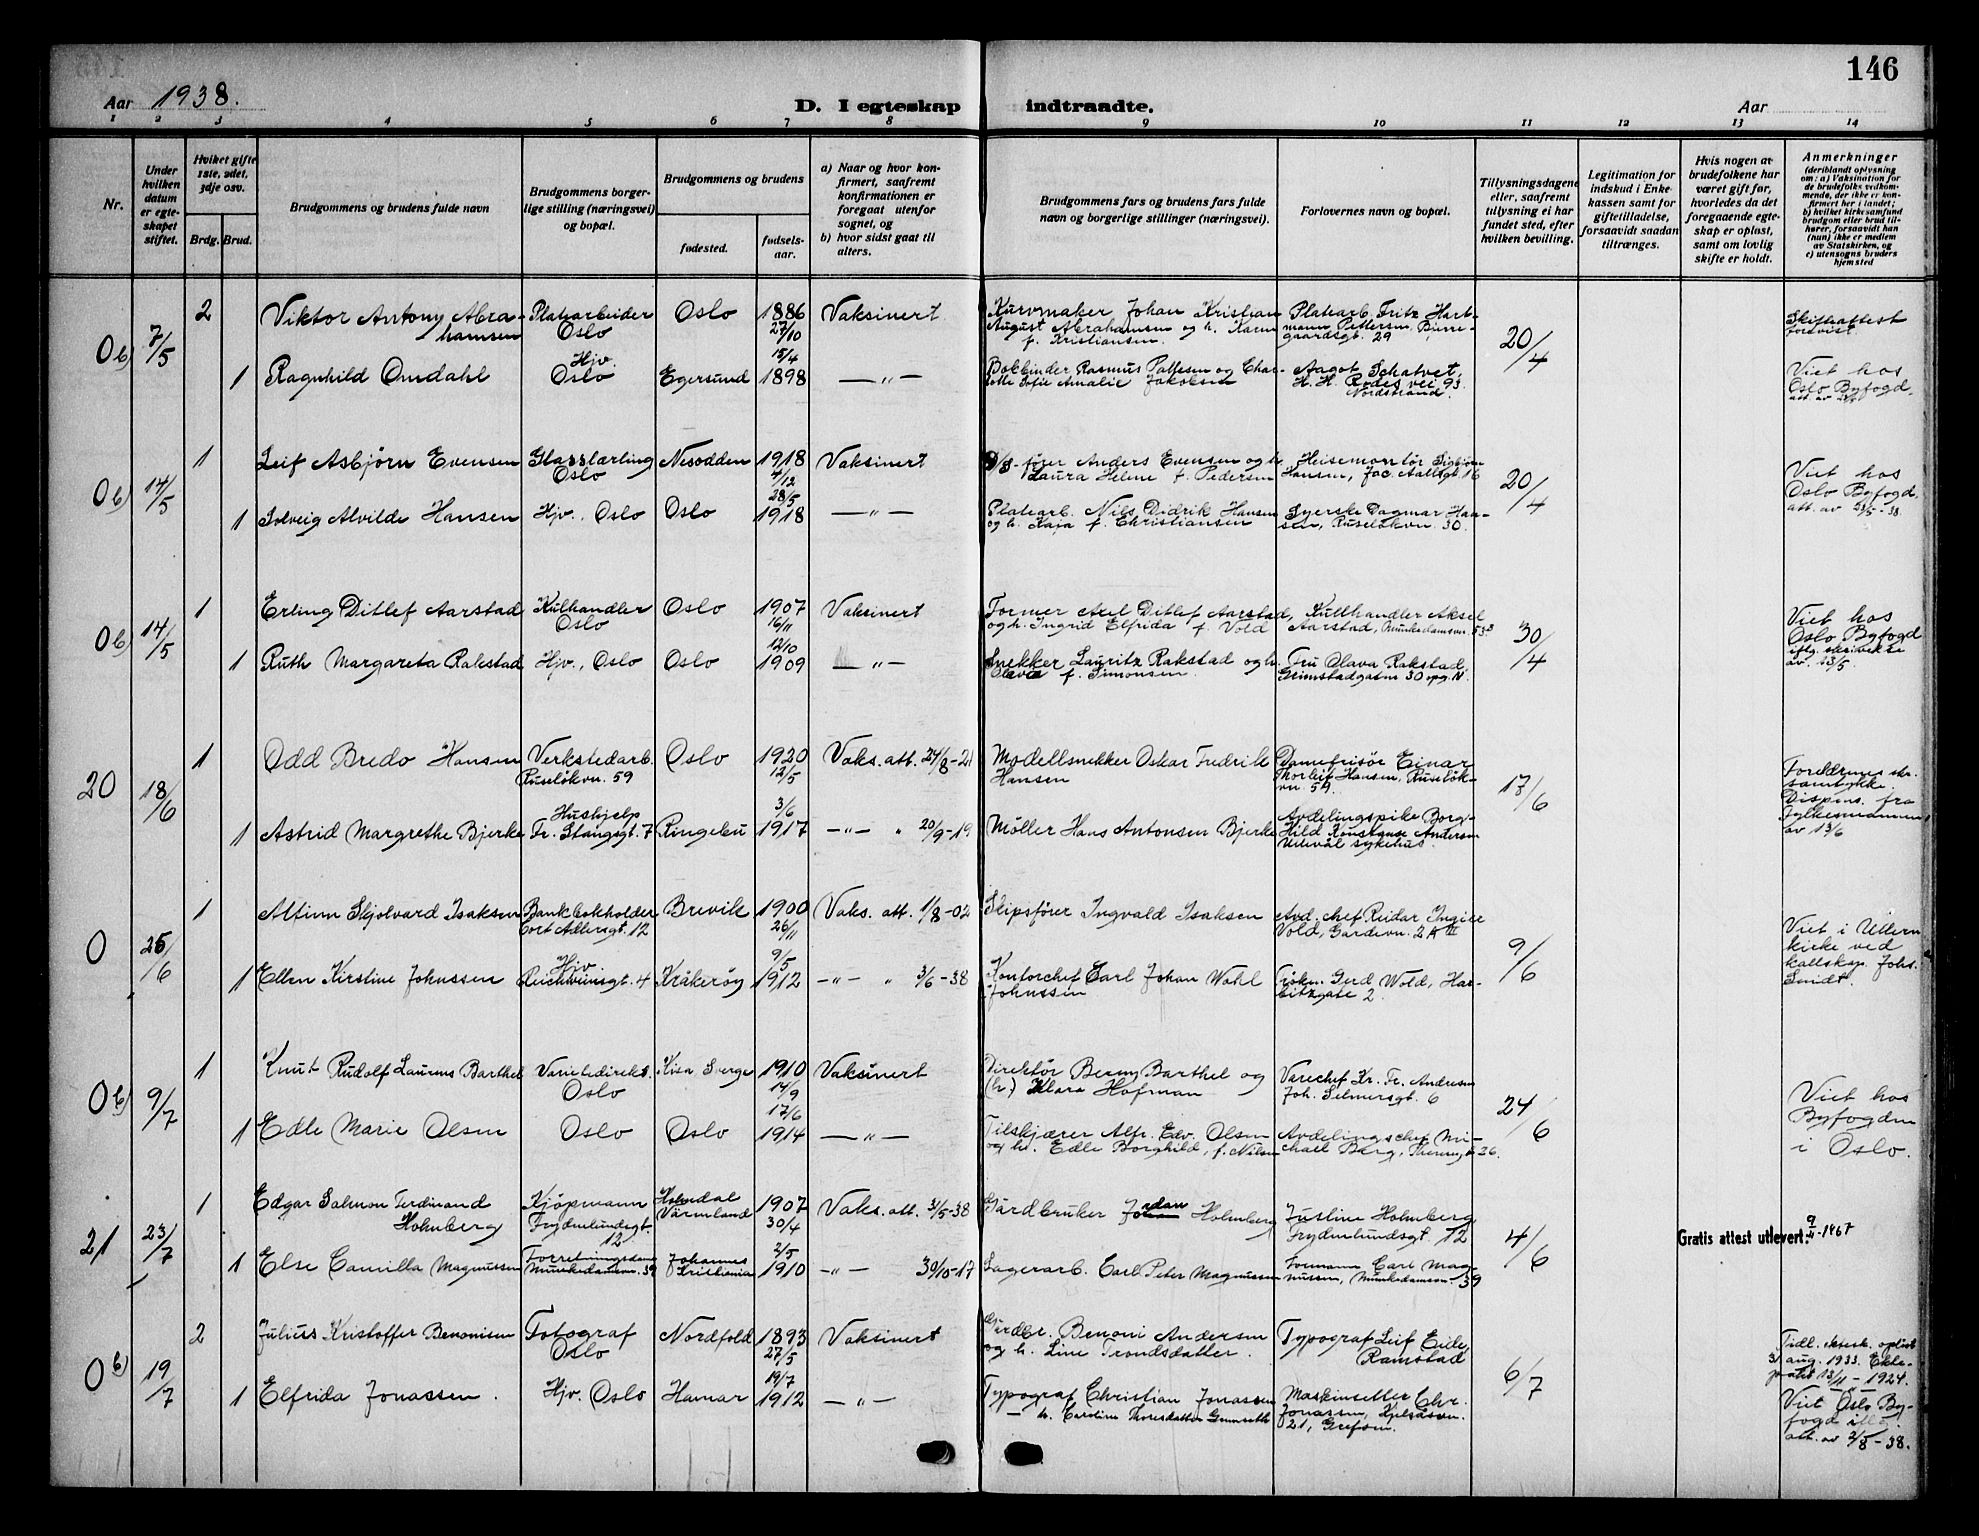 146
Aar 1938.
D. I egteskap indtraadte.
Aar
1 2 3 4 5 6 7 8 9 10 11 12 13 14
Nr.
Under
hvilken
datum
er egte-
skapet
stiftet.
Hvilket gifte
1ste, 2det,
3dje osv.
Brdg. Brud.
Brudgommens og brudens fulde navn
Brudgommens borger-
lige stilling (næringsvei)
og bopæl.
Brudgommens og brudens
fødested.
fødsels-
aar.
a) Naar og hvor kon-
firmert, saafremt
konfirmationen er
foregaat utenfor
sognet, og
b) hvor sidst gaat til
alters.
Brudgommens fars og brudens fars fulde
navn og borgerlige stillinger (næringsvei).
Forlovernes navn og bopæl.
Tillysningsdagene
eller, saafremt
tillysning ei har
fundet sted, efter
hvilken bevilling.
Legitimation for
indskud i Enke-
kassen samt for
giftetilladelse,
forsaavidt saadan
tiltrænges.
Hvis nogen av
brudefolkene har
været gift før,
hvorledes da det
foregaaende egte-
skap er opløst,
samt om lovlig
skifte er holdt.
Anmerkninger
(deriblandt oplysning
om: a) Vaksination for
de brudefolks vedkom-
mende, der ikke er kon-
firmert her i landet;
b) hvilket kirkesamfund
brudgom eller brud til-
hører, forsaavidt han
(hun) ikke er medlem
av Statskirken, og
c) utensogns bruders
hjemsted
0 b) 7/5
2 Viktor Antony Abra-
hamsen
Platearbeider
Oslo
Oslo
1886
27/10
Vaksinert
Kurvmaker Johan Kristian
August Abrahamsen og h. Karen
f. Kristiansen.
Platearb. Fritz Hart-
mann Pettersen, Bjerre-
gaardsgt. 29
20/4
Skifteattest
forevist.
1 Ragnhild Omdahl
Hjv.
Oslo
Egersund
15/4
1898
— „ —
Bokbinder Rasmus Pallesen og Char-
lotte Sofie Amalie Jakobsen
Aagot Schatvet,
H. H. Rodes vei 93.
Nordstrand.
Viet hos
Oslo Byfogd.
0 b) 14/5
1 Leif Asbjørn Evensen
Glasslærling
Oslo
Nesodden
1918
4/12
Vaksinert
fører Anders Evensen og h.
Laura Helene f. Pedersen
Heisemontør Sigbjørn
Hansen, Jac. Aallsgt. 16
20/4
1 Solveig Alvilde Hansen
Hjv., Oslo
Oslo
28/5
1918
— „ —
Platearb. Nils Didrik Hansen
og h. Kaja f. Christiansen
Syerske Dagmar Han-
sen, Ruseløkvn. 30.
Viet hos
Oslo Byfogd.
att. av 23/5-38.
0 b) 14/5
1 Erling Ditlef Aarstad
Kulhandler
Oslo
Oslo
1907
16/11
Vaksinert
Former Axel Ditlef Aarstad,
og h. Ingrid Elfrida f. Vold
Kullhandler Aksel
Aarstad, Munkedamsvn. 53
30/4
1 Ruth Margareta Rakstad
Hjv., Oslo
Oslo
12/10
1909
— „ —
Snekker Lauritz Rakstad og h.
Olava f. Simonsen.
Fru Olava Rakstad,
Grimstadgaten 30 opg. IV.
Viet hos
Oslo Byfogd
iflg. skrivelse
av. 13/5.
20 18/6
1 Odd Bredo Hansen
Verkstedarb.
Ruseløkvn. 59
Oslo
1920
12/5
Vaks. att. 24/8-21
Modellsnekker Oskar Fredrik
Hansen
Damefrisør Einar
Thorleif Hansen, Ruseløk-
vn. 59.
17/6
1 Astrid Margrethe Bjerke
Hushjelp
Fr. Stangsgt. 7
Ringebu
3/6
1917
— „ — „ 20/9-19
Møller Hans Antonsen Bjerke
Avdelingspike Borg-
hild Konstanse Andersen
Ullevål sykehus.
Foreldrenes skr.
samtykke.
Dispens. fra
fylkesmannen
av 13/6
0 25/6
1 Altinn Skjolvard Isaksen
Bankbokholder
Cort Adlersgt. 12
Brevik
1900
26/11
Vaks. att. 1/8-02
Skipsfører Ingvald Isaksen
Avd. chef Reidar Ingier
Vold, Gardevn. 2A III
9/6
1 Ellen Kirstine Johnssen
Hjv
Reichweinsgt. 4
Kråkerøy
9/5
1912
— „ — „ 3/6-38
Kontorchef Carl Johan Wahl
Johnssen
Frøken Gerd Wold, Har-
bitzgate 2.
Viet i Ullern
kirke ved
kallskap. Johs.
Smidt.
0 b) 9/7
1 Knut Rudolf Laurens Barthel
Varietedirekt.
Oslo
Kisa Sverge
1910
14/9
Vaksinert
Direktør Benny Barthel og
(h.) Klara Hofman
Varechef Kr. Fr. Andresen
Joh. Selmersgt. 6
24/6
1 Edle Marie Olsen
Oslo
Oslo
17/6
1914
— „ —
Tilskjærer Alfr. Edv. Olsen
og h. Edle Borghild, f. Nilsen
Avdelingschef Mi-
chael Berg, 26.
Viet hos
Byfogden
i Oslo.
21 23/7
1 Edgar Salmon Ferdinand
Holmberg
Kjøpmann
Frydenlundsgt.
12.
Holmedal
Värmland
1907
30/4
Vaks. att. 31/5-38
Gårdbruker Johan Holmberg
Justine Holmberg,
Frydenlundsgt. 12
4/6
Gratis attest utlevert. 9/11-1967
1 Else Camilla Magnussen
Forretningsdame
Munkedamsvn. 39
Johannes
Kristiania
2/5
1910
— „ — 30/10-17
Lagerarb. Carl Peter Magnussen
Formann Carl Mag-
nussen, Munkedamsvn. 39
0 b) 19/7
2 Julius Kristoffer Benonisen
Fotograf
Oslo
Nordfold
1893
27/5
Vaksinert
Gårdbr. Benoni Andersen
og h. Line Trondsdatter.
Typograf Leif Eide,
Ramstad
6/7
1 Elfrida Jonassen.
Hjv. Oslo
Hamar
19/7
1912
— „ —
Typograf Christian Jonassen
— h. Caroline Thoresdatter
Maskinsetter Chr.
Jonassen, Kjelsåsvn.
21, Grefsen.
Tidl. ektesk. opløst
31 aug. 1933. Ekte-
pakt 13/11-1924.
Viet Oslo By-
fogd iflg.
att. av 2/8-38.